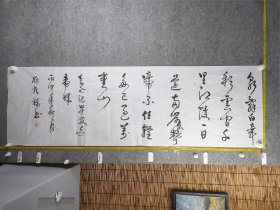 朝辭白帝
彩雲間千
里江陵一日
還兩岸猿聲
啼不住輕
舟已過萬
重山
李白詩早發白
帝城